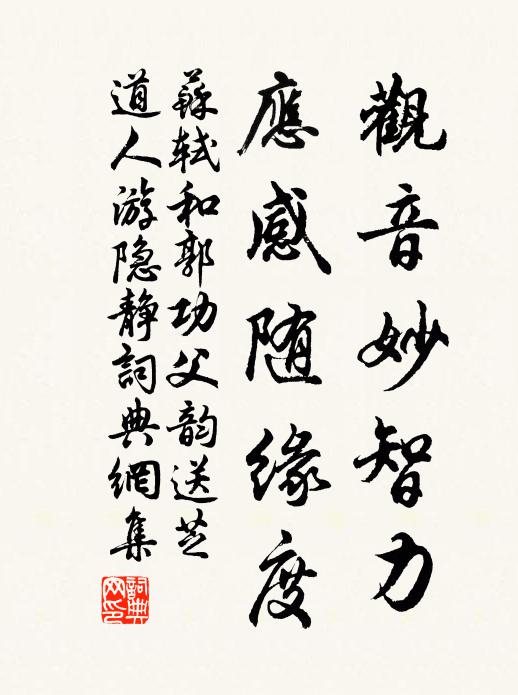 觀音妙智力
應感随緣度
蘇軾和郭功父韵送芝
道人游隐静詞典網集
詞典網印